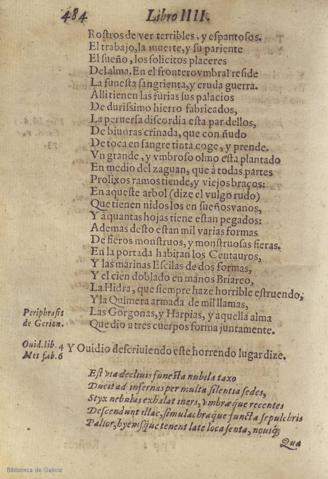 484 Libro IIII.
Rostros de ver terribles, y espantosos.
El trabajo, la muerte, y su pariente
El sueño, los solicitos placeres
Del alma. En el frontero vmbral reside
La funesta sangrienta, y cruda guerra.
Alli tienen las furias sus palacios
De durissimo hierro fabricados,
La peruersa discordia esta par dellos,
De biuoras crinada, que con ñudo
De toca en sangre tinta coge, y prende.
Vn grande, y vmbroso olmo esta plantado
En medio del zaguan, que à todas partes
Prolixos ramos tiende, y viejos braços:
En aqueste arbol (dize el vulgo rudo)
Que tienen nidos los en sueños vanos,
Y a quantas hojas tiene estan pegados:
Ademas desto estan mil varias formas
De fieros monstruos, y monstruosas fieras.
En la portada habitan los Centauros,
Y las marinas Escilas de dos formas,
Y el cien doblado en manos Briareo,
La Hidra, que siempre haze horrible estruendo,
Y la Quimera armada de mil llamas,
Las Gorgonas, y Harpias, y aquella alma
Que dio a tres cuerpos forma juntamente.
Periphrasis
de Gerion.
Ouid. lib. 4
Met fab. 6
Y Ouidio descriuiendo este horrendo lugar dize.
Est via decliuis funesta nubila taxo
Ducit ad infernas per multa silentia sedes,
Styx nebulas exhalat iners, vmbraque recentes
Descendunt illac, simulachraque functa sepulchris
Pallor, hyemsque tenent late loca senta, nouique
Qua
Biblioteca de Galicia